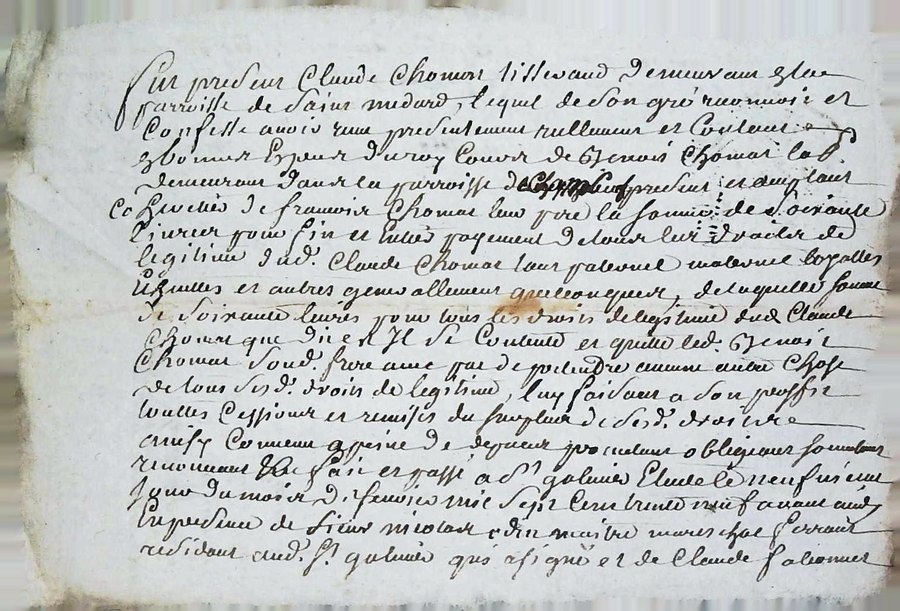 Fut present Claude Chomat tisserand demeurant
parroisse de Saint medard, lequel de son gré reconnoit et
Confesse avoir receu presentement reellement et Content
bonnes Especes du roy Cours de Benoit Chomat lab.
demeurant dans la parroisse de present et acceptant
Co heritier de francois Chomat leur pere la somme de Soixante
Livres pour fin et Entier payement de tous les droits de
legitime dud. Claude Chomat tant paternel maternel
et autres generallement quelconques, de laquelle somme
de Soixante livres pour tous les droits de legitime dud Claude
Chomat que dit est Il se Contente et quitte led. Benoit
Chomat Sond. frere avec pac de pretendre aucune autre Chose
de tous Sesd. droits de legitime, luy faisant a son proffit
touttes Cessions et remises du surplus de Sesd. droits
ainsy Convenu a peine de depens obligeant
renonceant fait et passé a St galmier Etude le neufvieme
Jour du mois de fevrier mil Sept Cent trente neuf avant midy
En presence de Sieur nicolas maitre mareschal ferrant
residant aud. St galmier qui a signé et de Claude